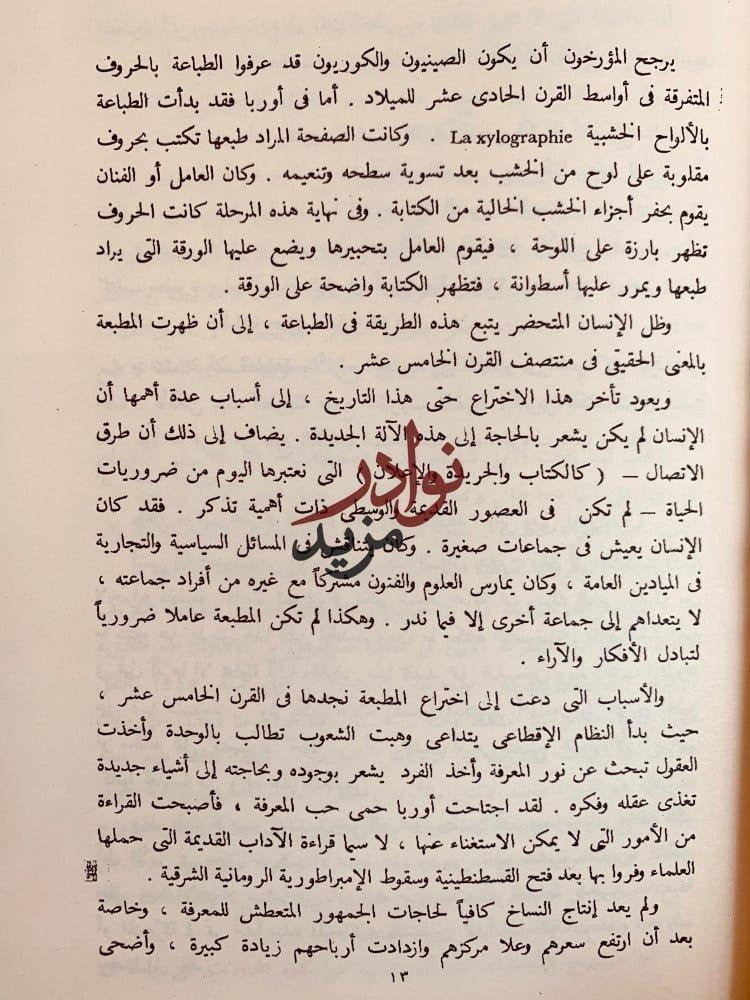 يرجح المؤرخون أن يكون الصينيون والكوريون قد عرفوا الطباعة بالحروف
المتفرقة فى أواسط القرن الحادى عشر للميلاد . أما فى أوربا فقد بدأت الطباعة
بالألواح الخشبية La xylographie . وكانت الصفحة المراد طبعها تكتب بحروف
مقلوبة على لوح من الخشب بعد تسوية سطحه وتنعيمه . وكان العامل أو الفنان
يقوم بحفر أجزاء الخشب الخالية من الكتابة . وفى نهاية هذه المرحلة كانت الحروف
تظهر بارزة على اللوحة ، فيقوم العامل بتحبيرها ويضع عليها الورقة التى يراد
طبعها ويمرر عليها أسطوانة ، فتظهر الكتابة واضحة على الورقة .
وظل الإنسان المتحضر يتبع هذه الطريقة فى الطباعة ، إلى أن ظهرت المطبعة
بالمعنى الحقيقى فى منتصف القرن الخامس عشر .
ويعود تأخر هذا الاختراع حتى هذا التاريخ ، إلى أسباب عدة أهمها أن
الإنسان لم يكن يشعر بالحاجة إلى هذه الآلة الجديدة . يضاف إلى ذلك أن طرق
الاتصال – ( كالكتاب والجريدة والإعلان ) التى نعتبرها اليوم من ضروريات
الحياة – لم تكن فى العصور القديمة والوسطى ذات أهمية تذكر . فقد كان
الإنسان يعيش فى جماعات صغيرة . وكان يتناقش فى المسائل السياسية والتجارية
فى الميادين العامة ، وكان يمارس العلوم والفنون مشتركاً مع غيره من أفراد جماعته ،
لا يتعداهم إلى جماعة أخرى إلا فيما ندر . وهكذا لم تكن المطبعة عاملا ضرورياً
لتبادل الأفكار والآراء .
والأسباب التى دعت إلى اختراع المطبعة نجدها فى القرن الخامس عشر ،
حيث بدأ النظام الإقطاعى يتداعى وهبت الشعوب تطالب بالوحدة وأخذت
العقول تبحث عن نور المعرفة وأخذ الفرد يشعر بوجوده وبحاجته إلى أشياء جديدة
تغذى عقله وفكره . لقد اجتاحت أوربا حمى حب المعرفة ، فأصبحت القراءة
من الأمور التى لا يمكن الاستغناء عنها ، لا سيما قراءة الآداب القديمة التى حملها
العلماء وفروا بها بعد فتح القسطنطينية وسقوط الإمبراطورية الرومانية الشرقية .
ولم يعد إنتاج النساخ كافياً لحاجات الجمهور المتعطش للمعرفة ، وخاصة
بعد أن ارتفع سعرهم وعلا مركزهم وازدادت أرباحهم زيادة كبيرة ، وأضحى
١٣
نوادر
مزيد